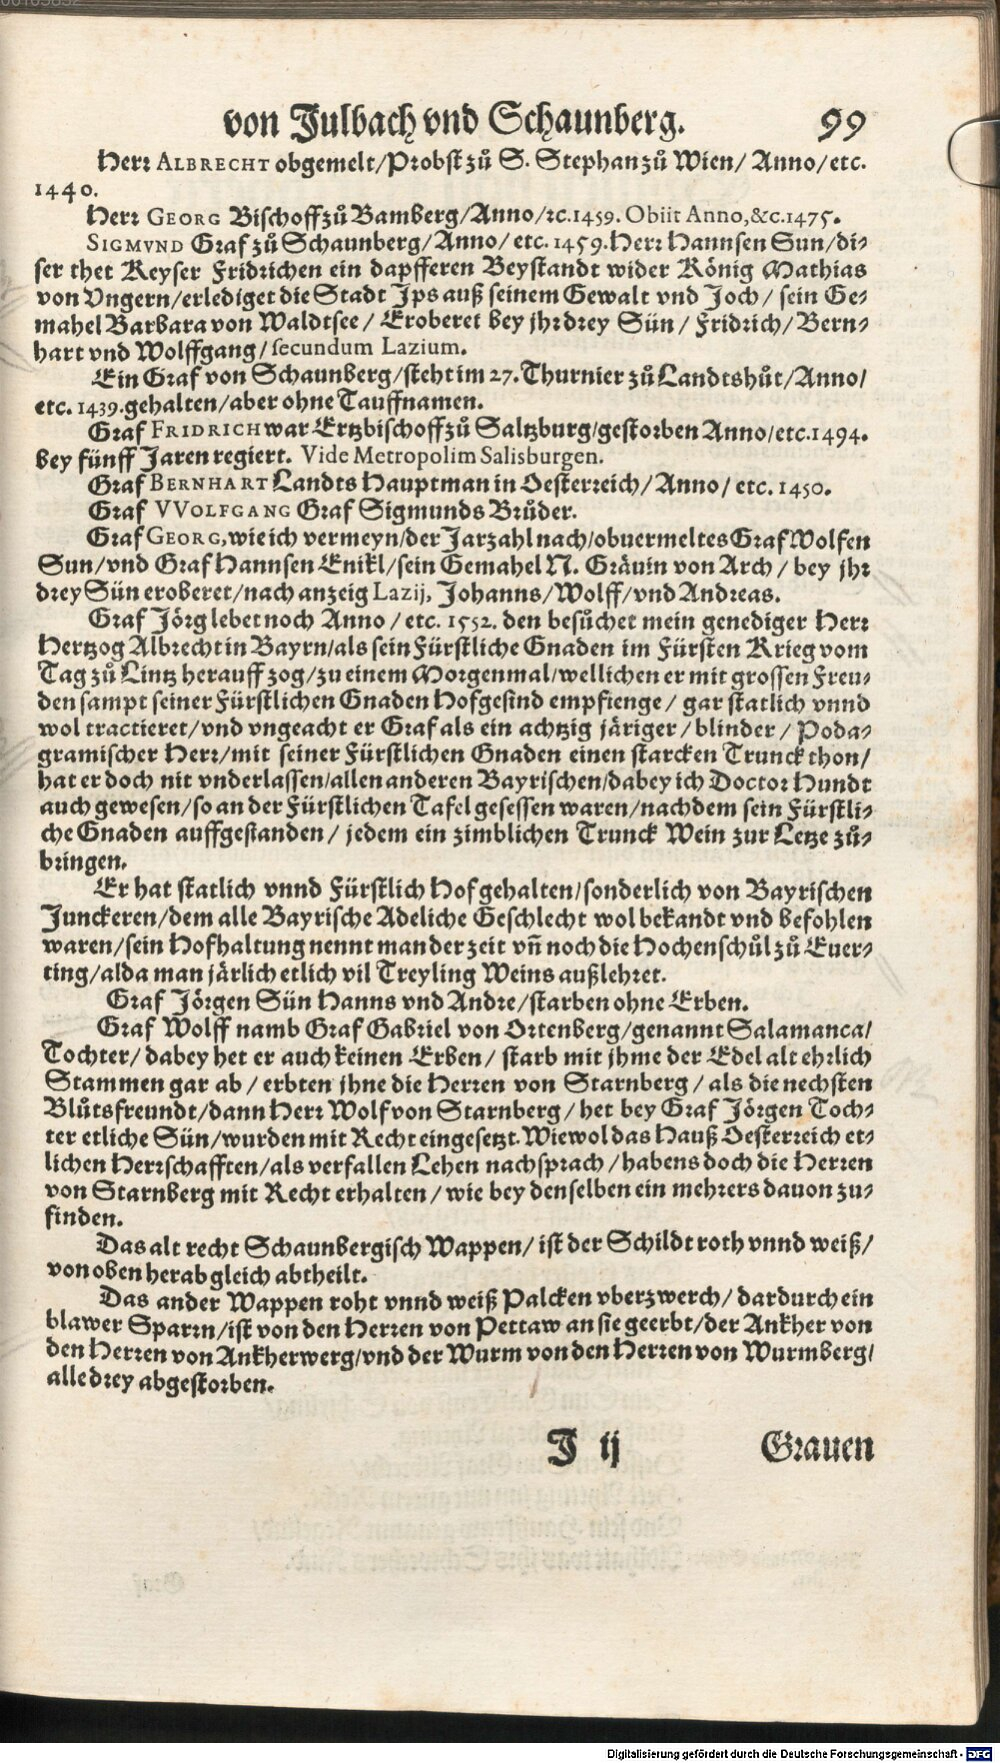 von Julbach vnd Schaunberg. 99
Herr ALBRECHT obgemelt/Probst zů S. Stephan zů Wien/ Anno/etc.
1440.
Herr GEORG Bischoff zů Bamberg/Anno/ꝛc.1459. Obiit Anno,&c.1475.
SIGMVND Graf zů Schaunberg/Anno/ etc. 1459.Herr Hannsen Sun/di⸗
ser thet Keyser Fridrichen ein dapfferen Beystandt wider König Mathias
von Vngern/erlediget die Stadt Jps auß seinem Gewalt vnd Joch/ sein Ge⸗
mahel Barbara von Waldtsee/ Eroberet bey jhr drey Sün/ Fridrich/Bern⸗
hart vnd Wolffgang/secundum Lazium.
Ein Graf von Schaunberg/steht im 27. Thurnier zů Landtshůt/Anno/
etc. 1439.gehalten/aber ohne Tauffnamen.
Graf FRIDRICH war Ertzbischoff zů Saltzburg/gestorben Anno/etc.1494.
bey fünff Jaren regiert. Vide Metropolim Salisburgen.
Graf BERNHART Landts Hauptman in Oesterreich/Anno/ etc. 1450.
Graf VVOLFGANG Graf Sigmunds Brůder.
Graf GEORG, wie ich vermeyn/der Jarzahl nach/obuermeltes Graf Wolfen
Sun/vnd Graf Hannsen Enikl/sein Gemahel N. Grävin von Arch/ bey jhr
drey Sün eroberet/nach anzeig Lazij, Johanns/Wolff/vnd Andreas.
Graf Jörg lebet noch Anno/ etc. 1552. den besůchet mein genediger Herr
Hertzog Albrecht in Bayrn/als sein Fürstliche Gnaden im Fürsten Krieg vom
Tag zů Lintz herauff zog/zu einem Morgenmal/wellichen er mit grossen Freu⸗
den sampt seiner Fürstlichen Gnaden Hofgesind empfienge/ gar statlich vnnd
wol tractieret/vnd vngeacht er Graf als ein achtzig järiger/ blinder/ Poda⸗
gramischer Herr/mit seiner Fürstlichen Gnaden einen starcken Trunck thon/
hat er doch nit vnderlassen/allen anderen Bayrischen/dabey ich Doctor Hundt
auch gewesen/so an der Fürstlichen Tafel gesessen waren/nachdem sein Fürstli⸗
che Gnaden auffgestanden/ jedem ein zimblichen Trunck Wein zur Letze zů⸗
bringen.
Er hat statlich vnnd Fürstlich Hof gehalten/sonderlich von Bayrischen
Junckeren/dem alle Bayrische Adeliche Geschlecht wol bekandt vnd befohlen
waren/sein Hofhaltung nennt man der zeit vñ noch die Hochenschůl zů Euer⸗
ting/alda man järlich etlich vil Treyling Weins außlehret.
Graf Jörgen Sün Hanns vnd Andre/starben ohne Erben.
Graf Wolff namb Graf Gabriel von Ortenberg/genannt Salamanca/
Tochter/dabey het er auch keinen Erben/ starb mit jhme der Edel alt ehrlich
Stammen gar ab/ erbten jhne die Herren von Starnberg/ als die nechsten
Blůtsfreundt/dann Herr Wolf von Starnberg/ het bey Graf Jörgen Toch⸗
ter etliche Sün/wurden mit Recht eingesetzt. Wiewol das Hauß Oesterreich et⸗
lichen Herrschafften/als verfallen Lehen nachsprach/habens doch die Herren
von Starnberg mit Recht erhalten/ wie bey denselben ein mehrers dauon zu⸗
finden.
Das alt recht Schaunbergisch Wappen/ ist der Schildt roth vnnd weiß/
von oben herab gleich abtheilt.
Das ander Wappen roht vnnd weiß Palcken vberzwerch/ dardurch ein
blawer Sparrn/ist von den Herren von Pettaw an sie geerbt/der Ankher von
den Herren von Ankherwerg/vnd der Wurm von den Herren von Wurmberg/
alle drey abgestorben.
J ij Grauen
Digitalisierung gefördert durch die Deutsche Forschungsgemeinschaft - DFG